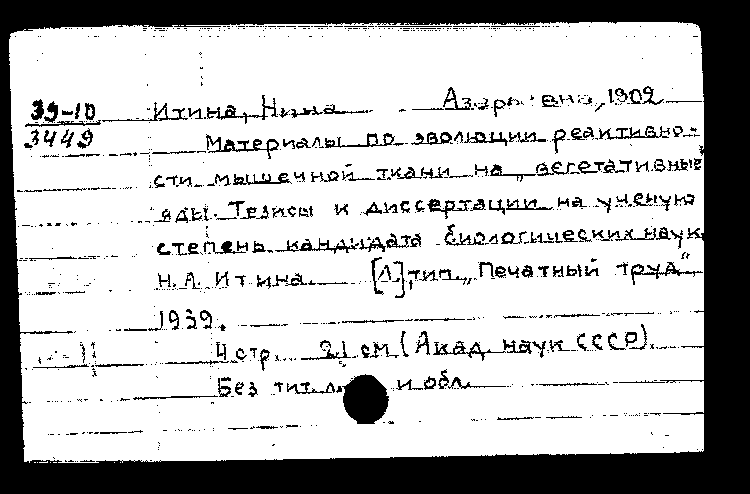 39-10
3449
Итина, Нина Азарьевна, 1902
Материалы по эволюции реактивно-
сти мышечной ткани на „вегетативные"
яды. Тезисы к диссертации на ученую
степень кандидата биологических наук.
Н. А. Итина. [Л], тип. „Печатный труд",
1939.
4 стр. 21 см (Акад. наук СССР).
Без тит. л. и обл.